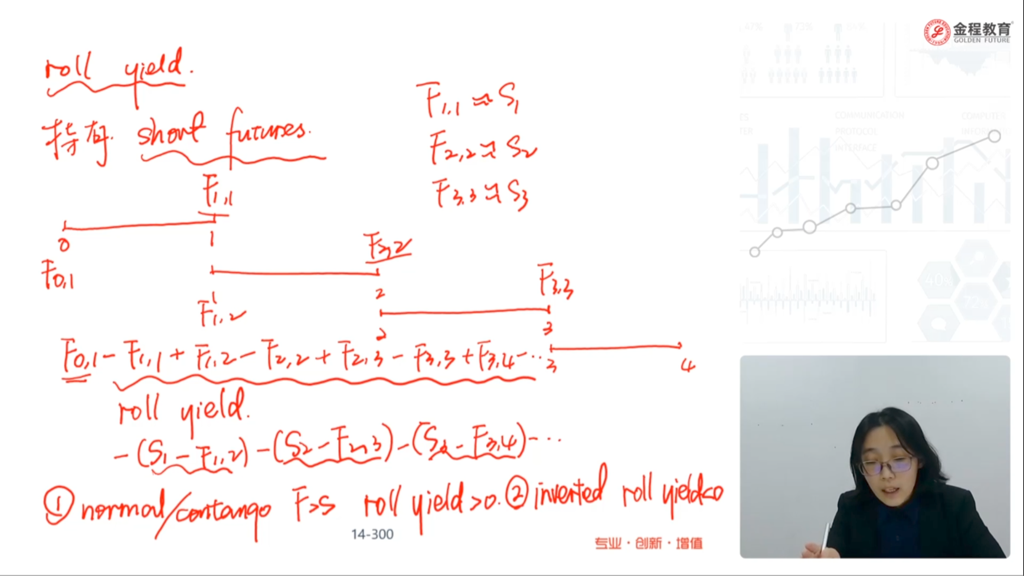 金程教育
GOLDEN FUTURE
roll yield.
持有 short futures.
F1,1 ≈ S1
F2,2 ≈ S2
F3,3 ≈ S3
F1,1
0
1
F0,1
F2,2
2
F1,2
F3,3
2
3
F0,1 - F1,1 + F1,2 - F2,2 + F2,3 - F3,3 + F3,4 - ...
3
4
roll yield.
- (S1 - F1,2) - (S2 - F2,3) - (S3 - F3,4) - ...
① normal/contango F>S roll yield >0. ② inverted roll yield<0
14-300
专业·创新·增值